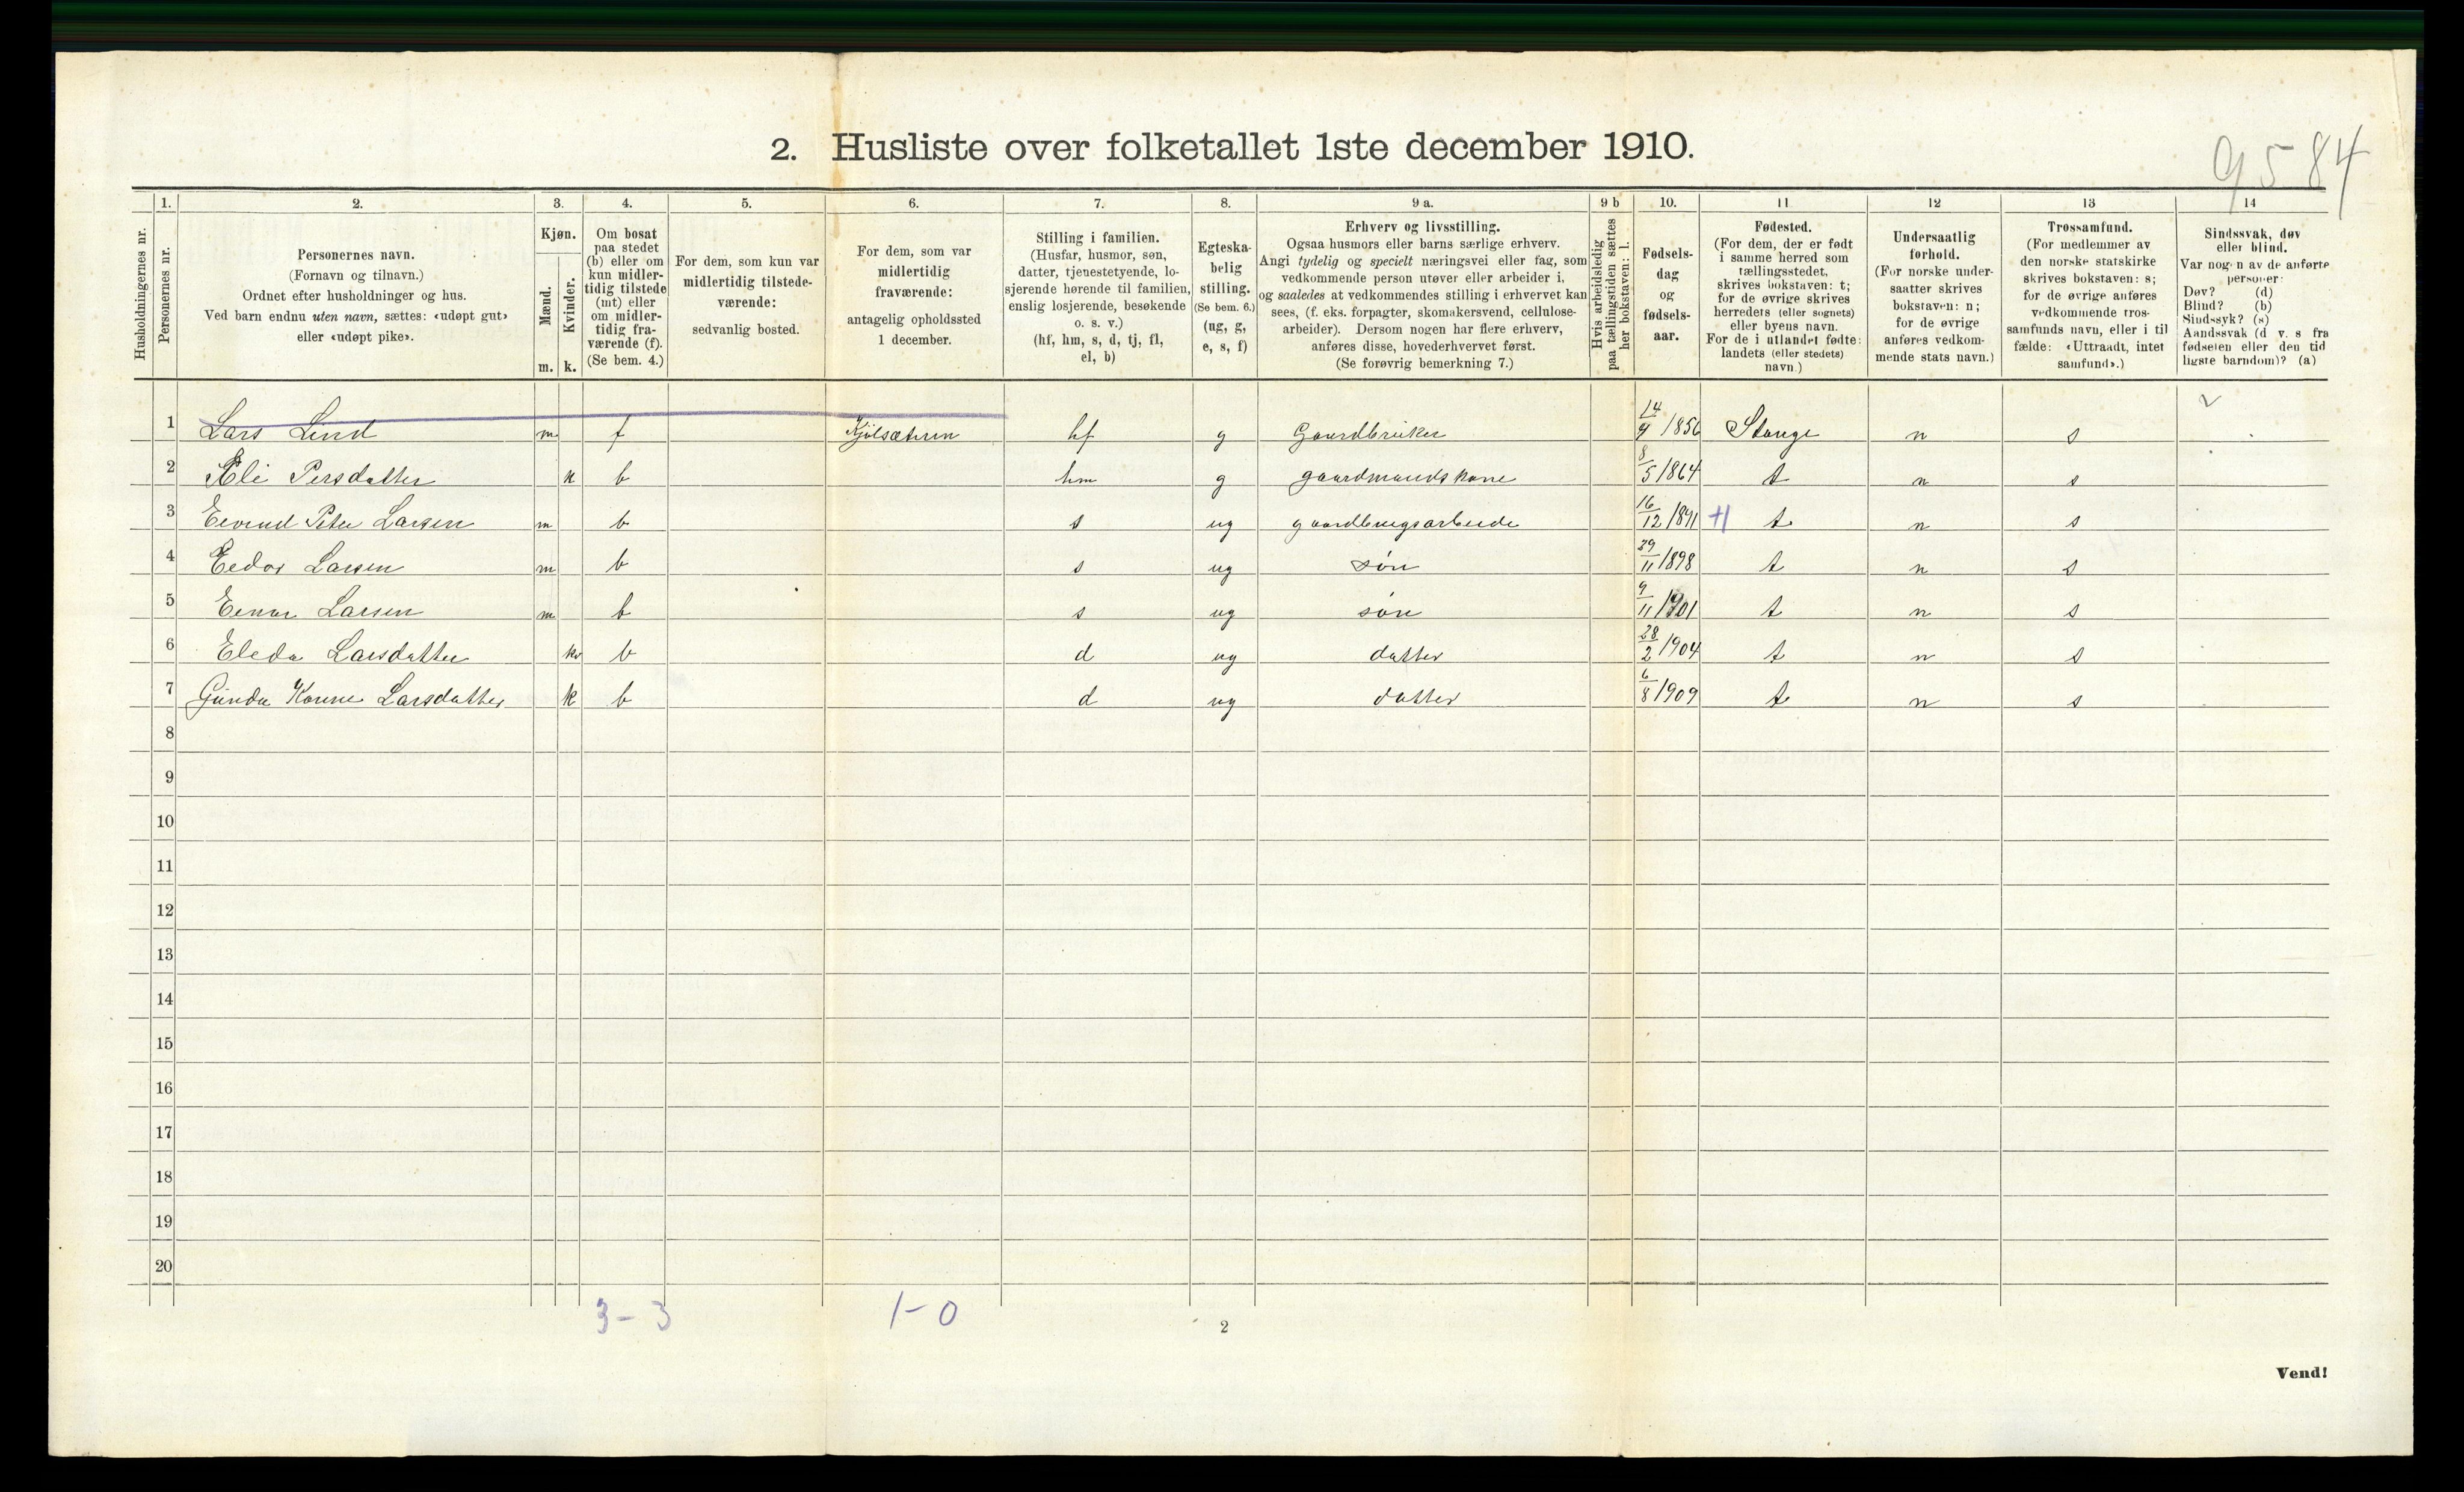 9584
2. Husliste over folketallet 1ste december 1910.
Husholdningernes nr.
1.
Personernes nr.
2.
Personernes navn.
(Fornavn og tilnavn.)
Ordnet efter husholdninger og hus.
Ved barn endnu uten navn, sættes: «udøpt gut»
eller «udøpt pike».
3.
Kjøn.
Mænd.
m.
Kvinder.
k.
4.
Om bosat
paa stedet
(b) eller om
kun midler-
tidig tilstede
(mt) eller
om midler-
tidig fra-
værende (f).
(Se bem. 4.)
5.
For dem, som kun var
midlertidig tilstede-
værende:
sedvanlig bosted.
6.
For dem, som var
midlertidig
fraværende:
antagelig opholdssted
1 december.
7.
Stilling i familien.
(Husfar, husmor, søn,
datter, tjenestetyende, lo-
sjerende hørende til familien,
enslig losjerende, besøkende
o. s. v.)
(hf, hm, s, d, tj, fl,
el, b)
8.
Egteska-
belig
stilling.
(Se bem. 6.)
(ug, g,
e, s, f)
9 a.
Erhverv og livsstilling.
Ogsaa husmors eller barns særlige erhverv.
Angi tydelig og specielt næringsvei eller fag, som
vedkommende person utøver eller arbeider i,
og saaledes at vedkommendes stilling i erhvervet kan
sees, (f. eks. forpagter, skomakersvend, cellulose-
arbeider). Dersom nogen har flere erhverv,
anføres disse, hovederhvervet først.
(Se forøvrig bemerkning 7.)
9 b
Hvis arbeidsledig
paa tællingstiden sættes
her bokstaven: l.
10.
Fødsels-
dag
og
fødsels-
aar.
11
Fødested.
(For dem, der er født
i samme herred som
tællingsstedet,
skrives bokstaven: t;
for de øvrige skrives
herredets (eller sognets)
eller byens navn.
For de i utlandet fødte:
landets (eller stedets)
navn.)
12
Undersaatlig
forhold.
(For norske under-
saatter skrives
bokstaven: n;
for de øvrige
anføres vedkom-
mende stats navn.)
13
Trossamfund.
(For medlemmer av
den norske statskirke
skrives bokstaven: s;
for de øvrige anføres
vedkommende tros-
samfunds navn, eller i til-
fælde: «Uttraadt, intet
samfund».)
14
Sindssvak, døv
eller blind.
Var nogen av de anførte
personer:
Døv? (d)
Blind? (b)
Sindssyk? (s)
Aandssvak (d v. s fra
fødselen eller den tid
ligste barndom)? (a)
1 Lars Lind m f Kjølsæteren hf g Gaardbruker 14/4 1856 Stange n s
2 Eli Persdatter k b hm g gaardmandskone 8/5 1864 t n s
3 Eivind Peter Larsen m b s ug gaardbrugsarbeide 16/12 1891 t n s
4 Eedor Larsen m b s ug søn 29/11 1898 t n s
5 Einar Larsen m b s ug søn 9/11 1901 t n s
6 Eleda Larsdatter kv b d ug datter 28/2 1904 t n s
7 Gunda Karine Larsdatter k b d ug datter 6/8 1909 t n s
8
9
10
11
12
13
14
15
16
17
18
19
20
3-3 1-0
2
Vend!